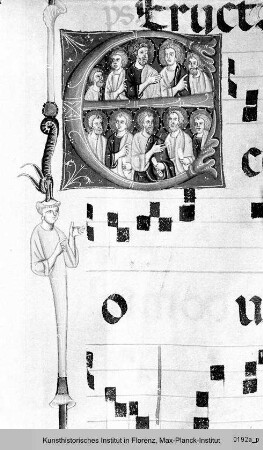 Eructa
o u
Kunsthistorisches Institut in Florenz, Max-Planck-Institut 0192a_p